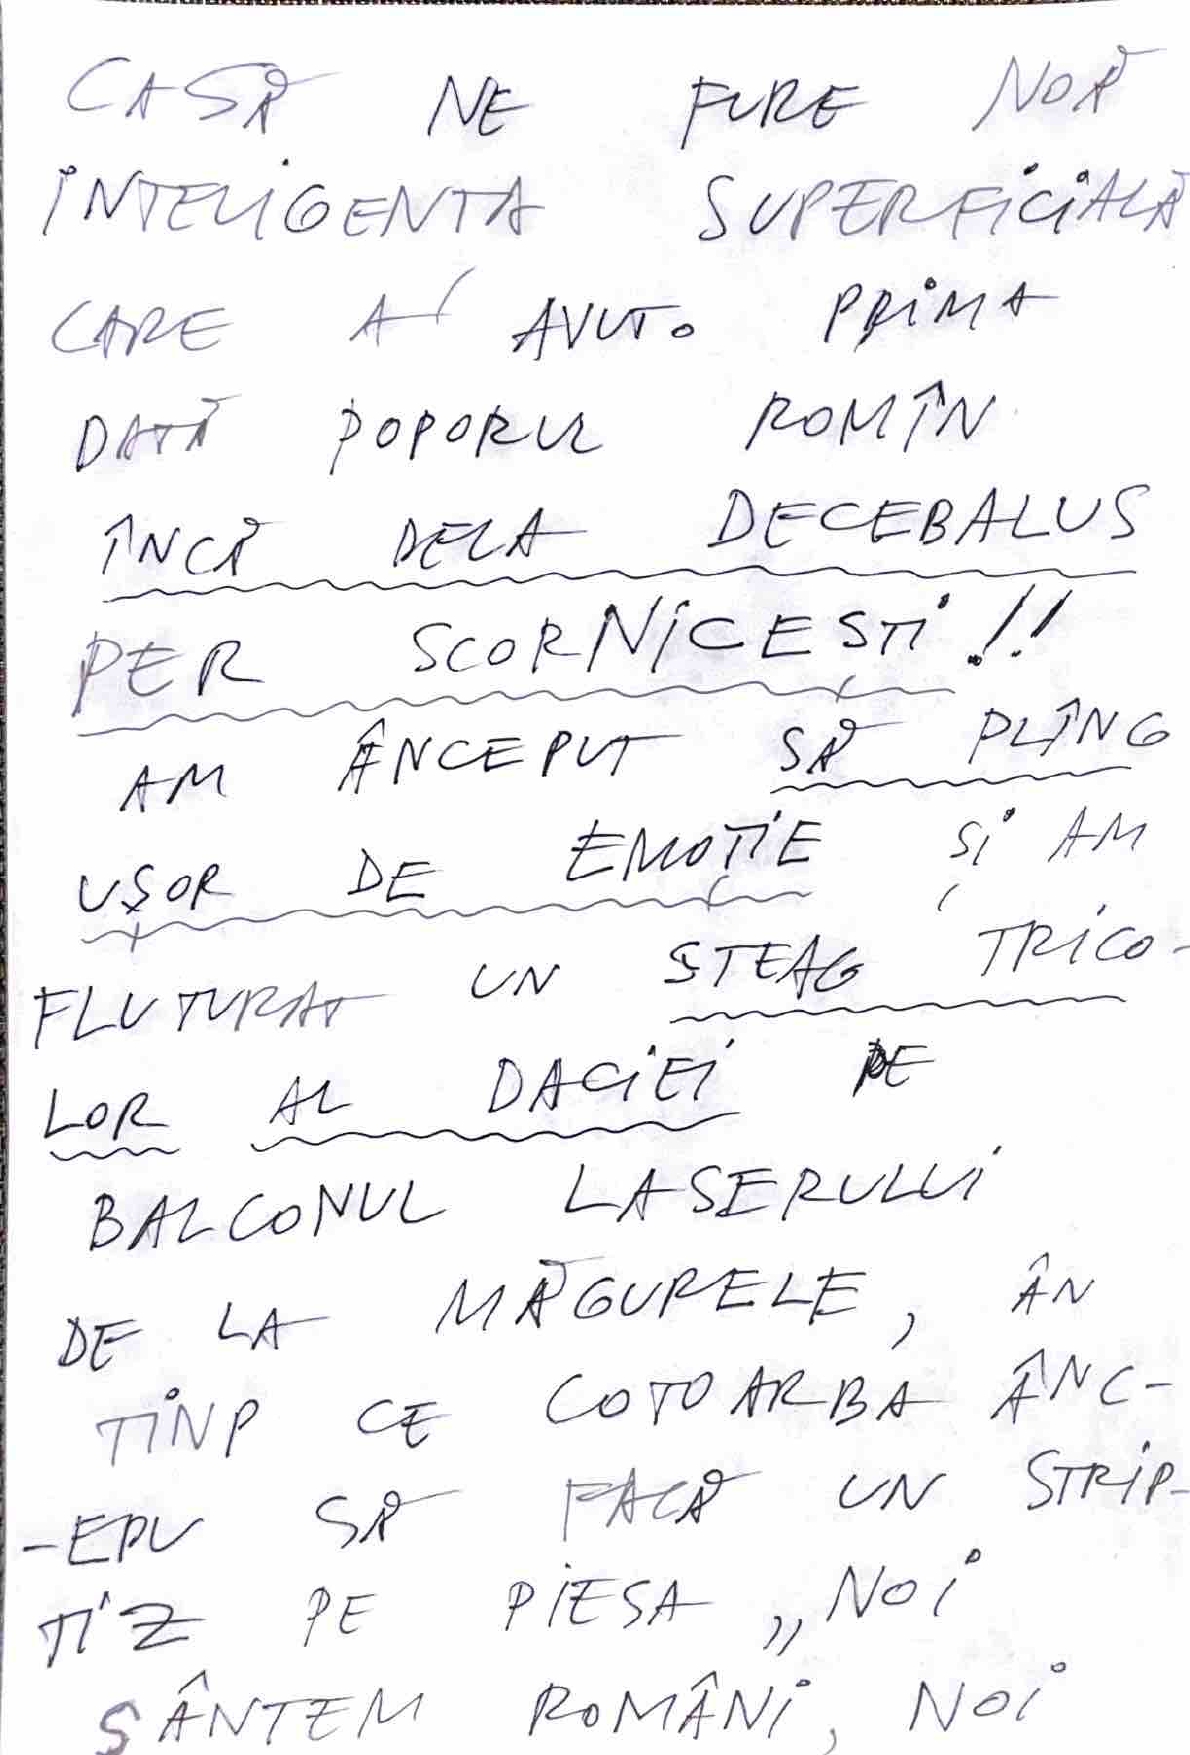 CA SĂ NE FURE NOĂ
INTELIGENTA SUPERFICIALĂ
CARE A AVUT-O PRIMA
DATĂ POPORUL ROMÎN
ÎNCĂ DELA DECEBALUS
PER SCORNICEȘTI!!
AM ÂNCEPUT SĂ PLÎNG
UȘOR DE EMOȚIE ȘI AM
FLUTURAT UN STEAG TRICO-
LOR AL DACIEI PE
BALCONUL LASERULUI
DE LA MĂGURELE, ÂN
TINP CE COTOARBA ÂNC-
-EPU SĂ FACĂ UN STRIP-
TIZ PE PIESA „NOI
SÂNTEM ROMÂNI, NOI